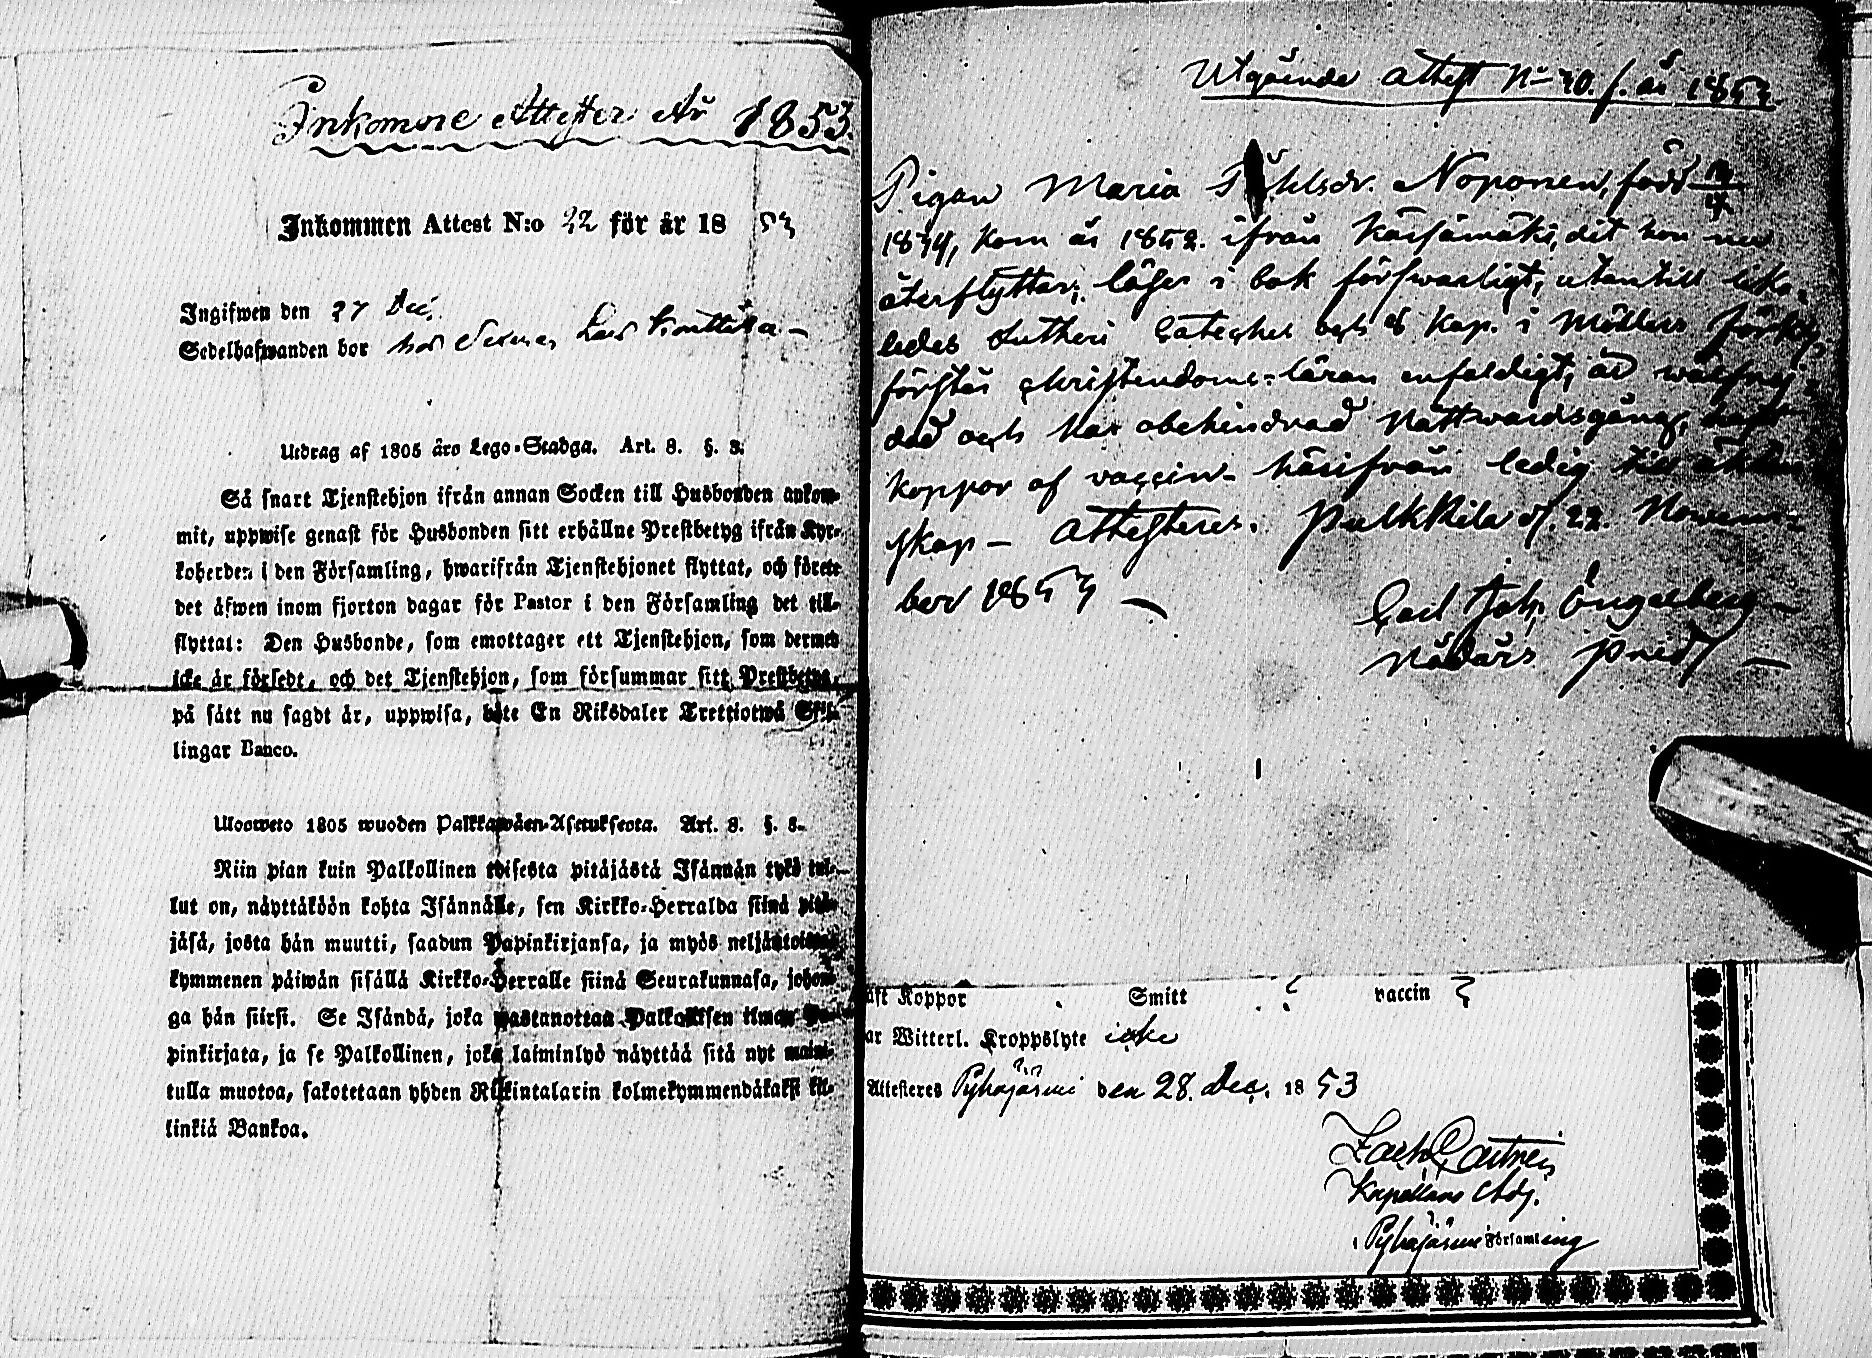 Inkomne Attester År 1853.
Inkommen Attest N:o 22 för år 18 53
Ingifwen den 27 Dec.
Sedelhafwanden bor hos
Utdrag af 1805 års Lego-Stadga. Art. 8. §. 3.
Så snart Tjenstehjon ifrån annan Socken till Husbonden ankom-
mit, uppwise genast för Husbonden sitt erhållne Prestbetyg ifrån Kyr-
koherden i den Församling, hwarifrån Tjenstehjonet flyttat, och förete
det äfwen inom fjorton dagar för Pastor i den Församling det till-
flyttat: Den Husbonde, som emottager ett Tjenstehjon, som dermed
icke är försedt, och det Tjenstehjon, som försummar sitt Prestbetyg,
på sätt nu sagdt är, uppwisa, böte En Riksdaler Trettiotwå Skil-
lingar Banco.
Ulosweto 1805 wuoden Palkkawäen-Asetuksesta. Art. 8. §. 3.
Niin pian kuin Palkollinen toisesta pitäjästä Isännän tykö tul-
lut on, näyttäköön kohta Isännälle, sen Kirkko-Herralda siinä pitä-
jäsä, josta hän muutti, saadun Papinkirjansa, ja myös neljäntoista-
kymmenen päiwän sisällä Kirkko-Herralle siinä Seurakunnasa, johon-
ga hän siirsi. Se Isändä, joka wastanottaa Palkollisen ilman Pa-
pinkirjata, ja se Palkollinen, joka laiminlyö näyttää sitä nyt maini-
tulla muotoa, sakotetaan yhden Riikintalarin kolmekymmendäkaksi kil-
linkiä Bankoa.
Utgående attest No 40. f. år 1853.
Pigan Maria Noponen, född
1834, kom år 1852. ifrån Kärsämäki, dit hon nu
återflyttar; läser i bok förswarligt, utantill lika-
ledes Lutheri Cateches och 8 Kap. i Möllers
förstår christendoms-läran enfaldigt; är wälfrej-
dad och har obehindrad Nattwardsgång, haft
koppor af vaccin - härifrån ledig till äkten-
skap - Attesteras. Pulkkila d. 22. Novem-
ber 1853 —
Carl Joh. Engelberg
Nådårs pred. —
aft Koppor Smitt vaccin
ar Witterl. Kroppslyte icke
Attesteres Pyhäjärwi den 28. Dec. 18 53
Zach. Castrén
Kapellans Adj.
i Pyhäjärwi Församling